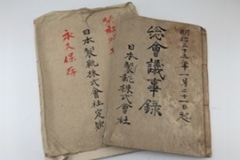 明治三十三年一月二十一日起
総會議事録
日本製靴株式會社
日本製靴株式會社定款
永久保存